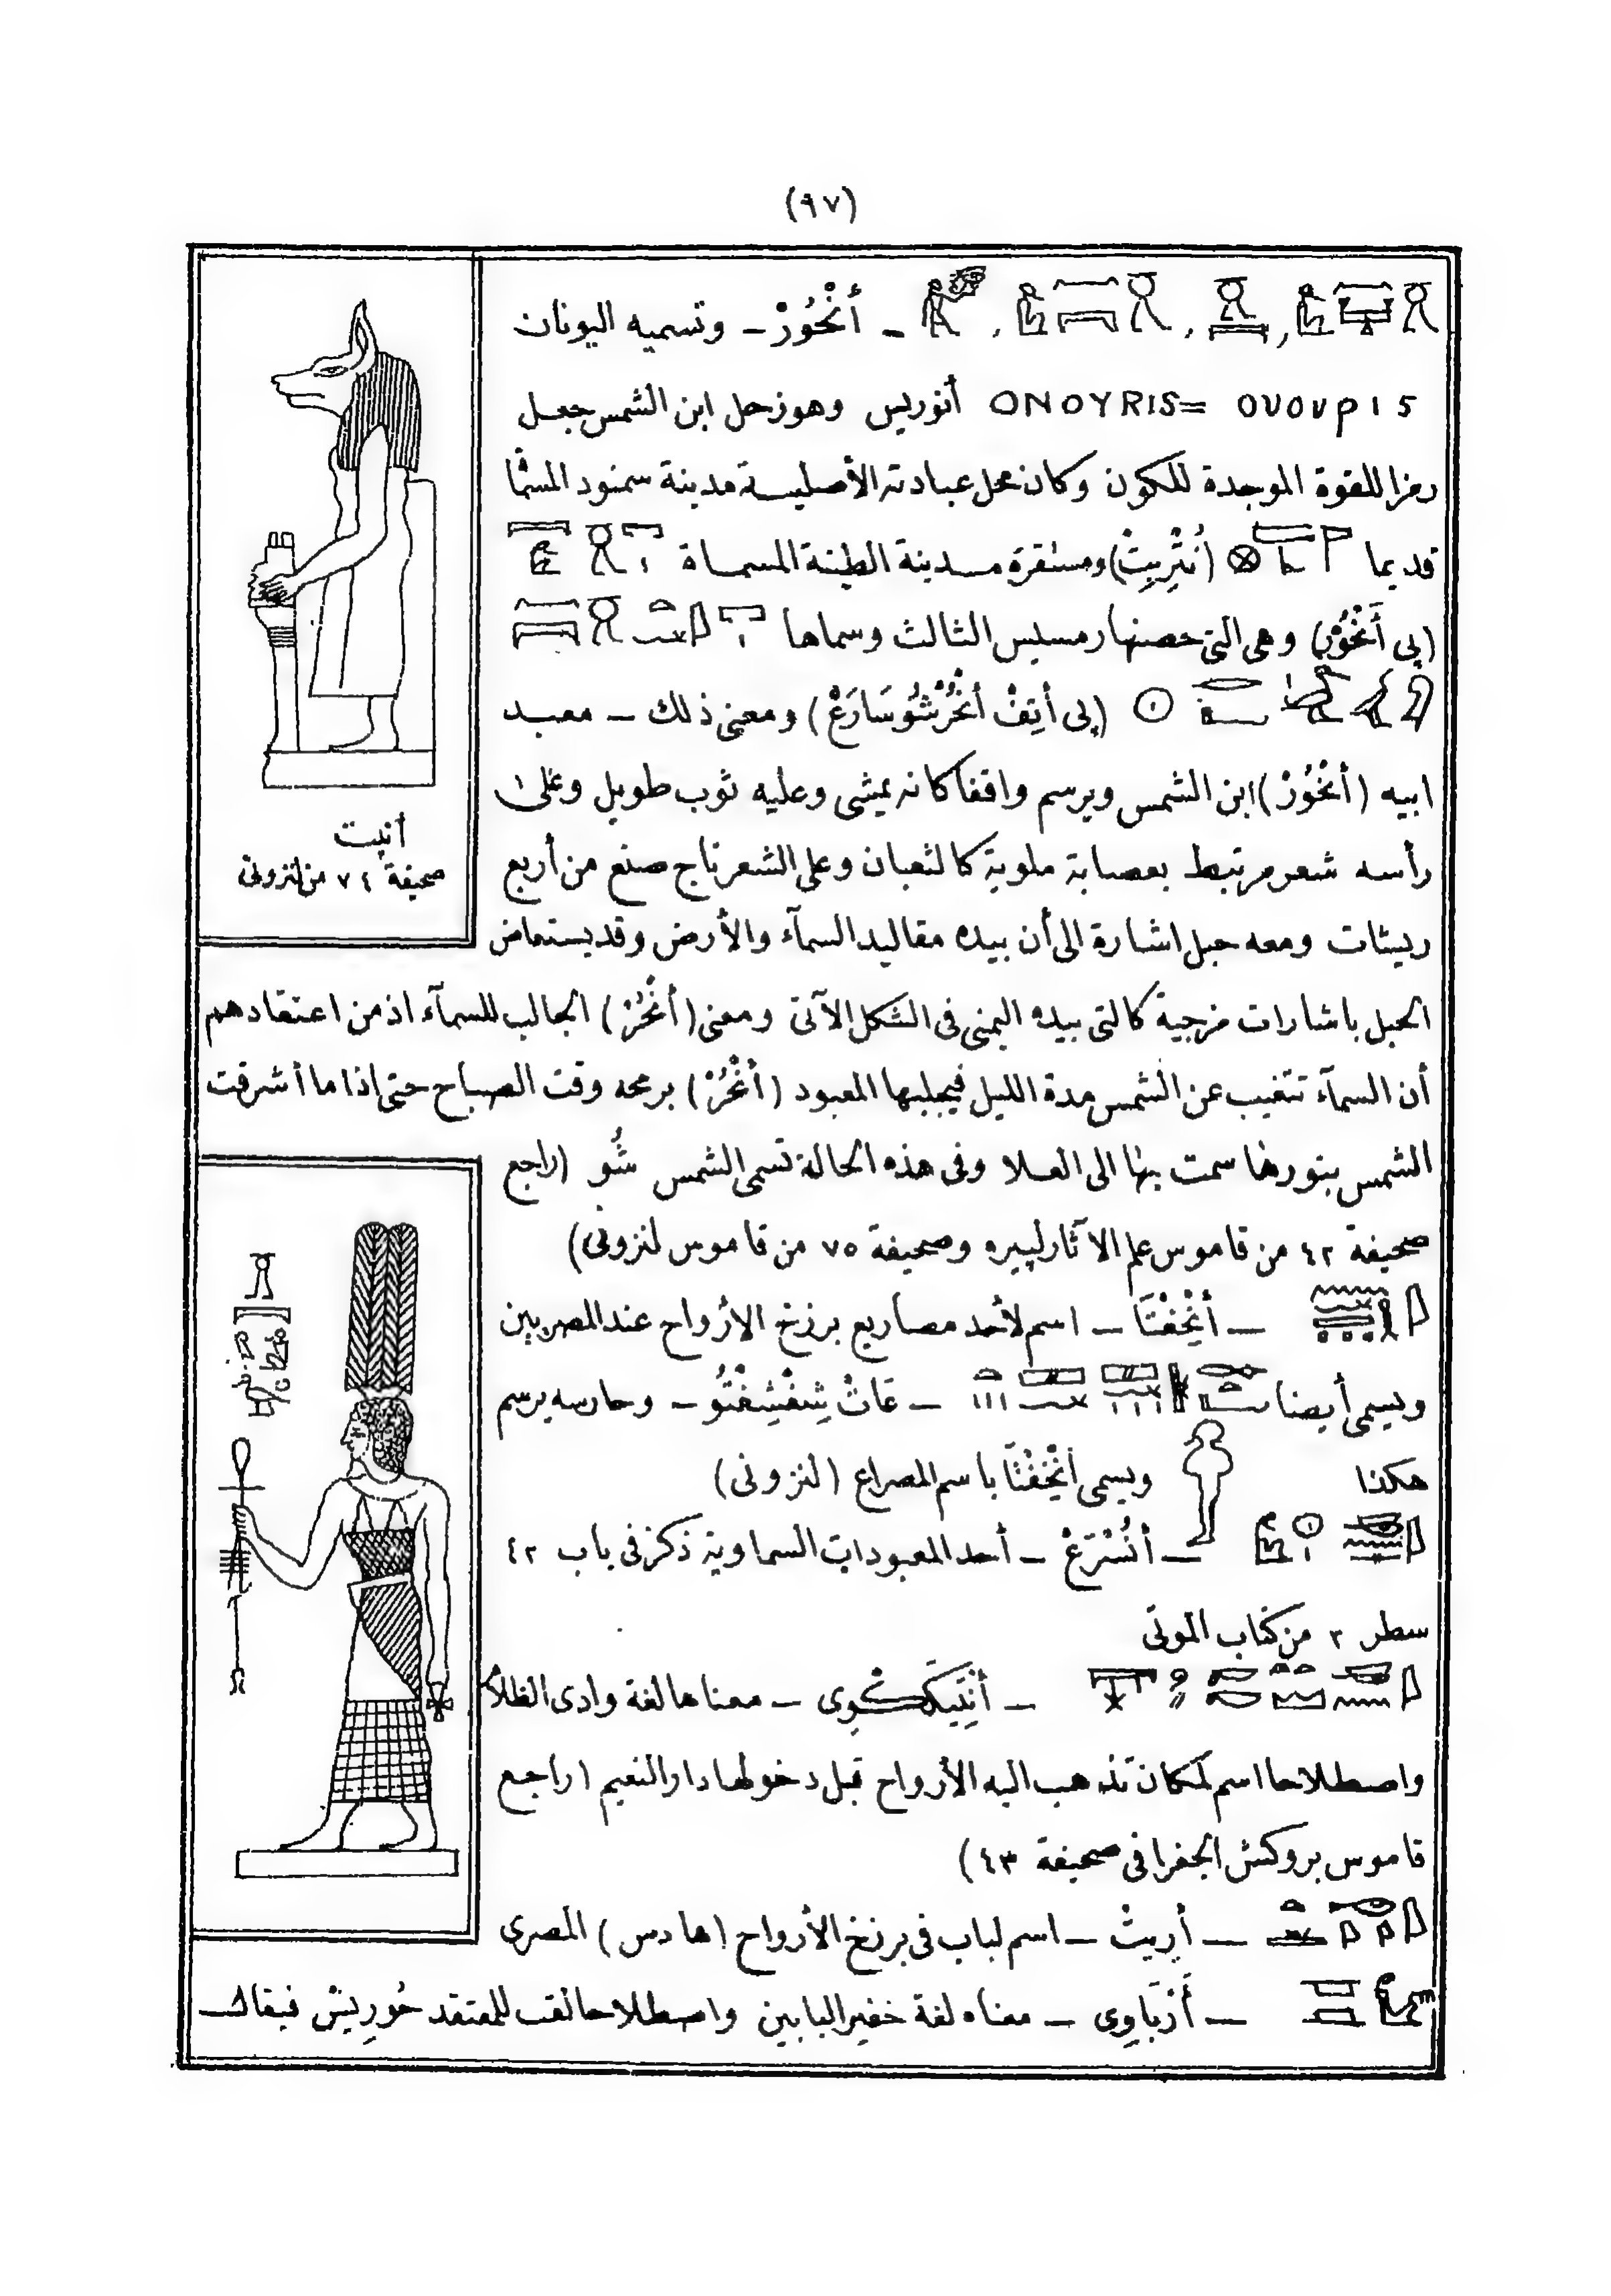 (٩٧)
أنْحُورْ - وتسميه اليونان
ονουρις =ONOYRIS أنوريس وهو زحل ابن الشمس جعل
رمزا للقوة الموجدة للكون وكان محل عبادته الأصلية مدينة سمنود المسماا
قديما (نُتْرِيتْ) ومستقره مدينة الطينة المسماة
(پى أَنْحُورْ) وهى التى حصنها رمسيس الثالث وسماها
(پى أَتِفْ أنْحُرْشُوسَارَعْ) ومعنى ذلك - معبد
ابيه (أنْحُورْ) ابن الشمس ويرسم واقفا كانه يمشى وعليه ثوب طويل وعلى
رأسه شعر مرتبط بعصابة ملوية كالثعبان وعلى الشعر تاج صنع من أربع
ريشات ومعه حبل اشارة الى أن بيده مقاليد السمآء والأرض وقد يستعاض
الحبل باشارات مزجية كالتى بيده اليمنى فى الشكل الآتى ومعنى (أنْحُرْ) الجالب للسمآء اذ من اعتقادهم
أن السمآء تتغيب عن الشمس مدة الليل فيجلبها المعبود (أنْحُرْ) برمحه وقت الصباح حتى اذا ما أشرقت
الشمس بنورها سمت بها الى العلا وفى هذه الحالة تسمى الشمس شُو (راجع
صحيفة ٤٢ من قاموس علم الآثار لپيره وصحيفة ٧٥ من قاموس لنزونى)
- أنْخِفْتَا - اسم لأحد مصاريع برزخ الأرواح عند المصريين
ويسمى أيضا - عَاتْ شِفْشِفْتُو - وحارسه يرسم
هكذا ويسمى أنْخِفْتَا باسم المصراع (لنزونى)
- أنُسْتِرَعْ - أحد المعبودات السماوية ذكر فى باب ٤٢
سطر ٣ من كتاب الموتى
- أنْتِيكَكْوِى - معناها لغة وادى الظلا
واصطلاحا اسم لمكان تذهب اليه الأرواح قبل دخولها دار النعيم (راجع
قاموس بروكش الجغرافى صحيفة ٤٣)
- أرِيتْ - اسم لباب فى برزخ الأرواح (هادس) المصرى
- أَرْبَاوِى - معناه لغة خفير البابين واصطلاحا لقب للمعتقد حُورِيسْ فيقال
أنپت
صحيفة ٧٤ من لنزونى